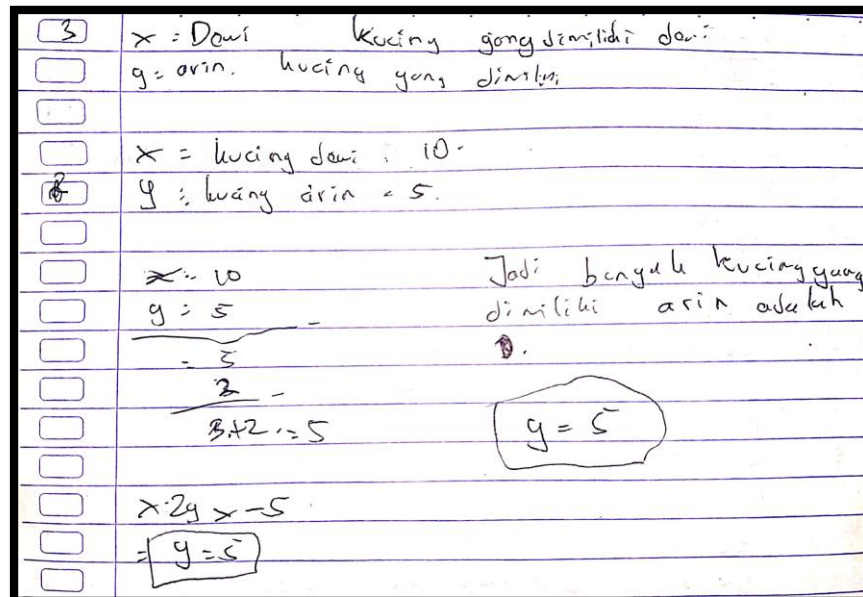 3 x = Dewi Kucing yang dimiliki dewi
y = arin. kucing yang dimiliki
x = kucing dewi : 10.
y : kucing arin = 5.
x = 10 Jadi banyak kucing yang
y = 5 - dimiliki arin adalah
= 5
2 -
3+2 = 5 y = 5
x 2y x -5
= y = 5